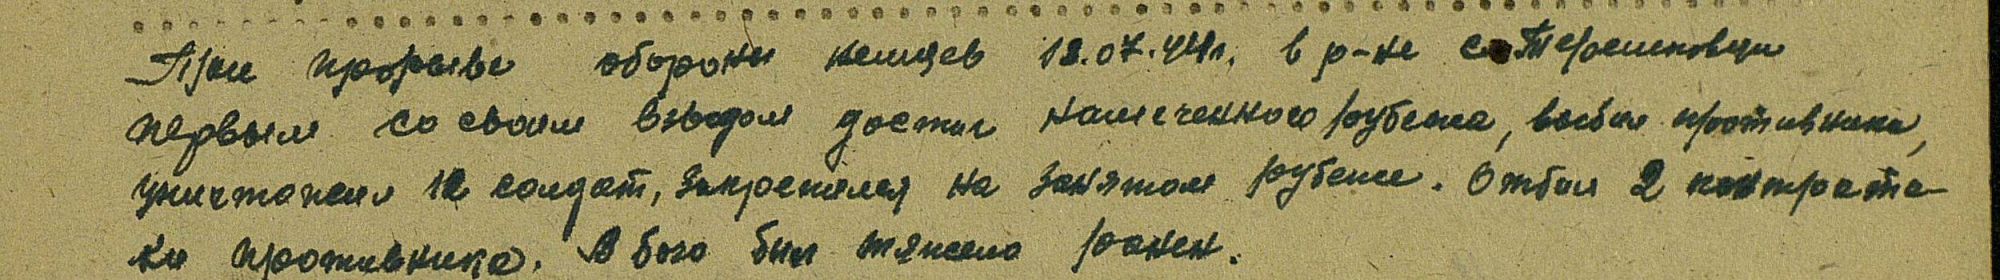 При прорыве обороны немцев 18.07.44г. в р-не с. Терешковцы
первым со своим взводом достиг намеченного рубежа, выбил противника,
уничтожил 12 солдат, закрепился на занятом рубеже. Отбил 2 контрата-
ки противника. В бою был тяжело ранен.